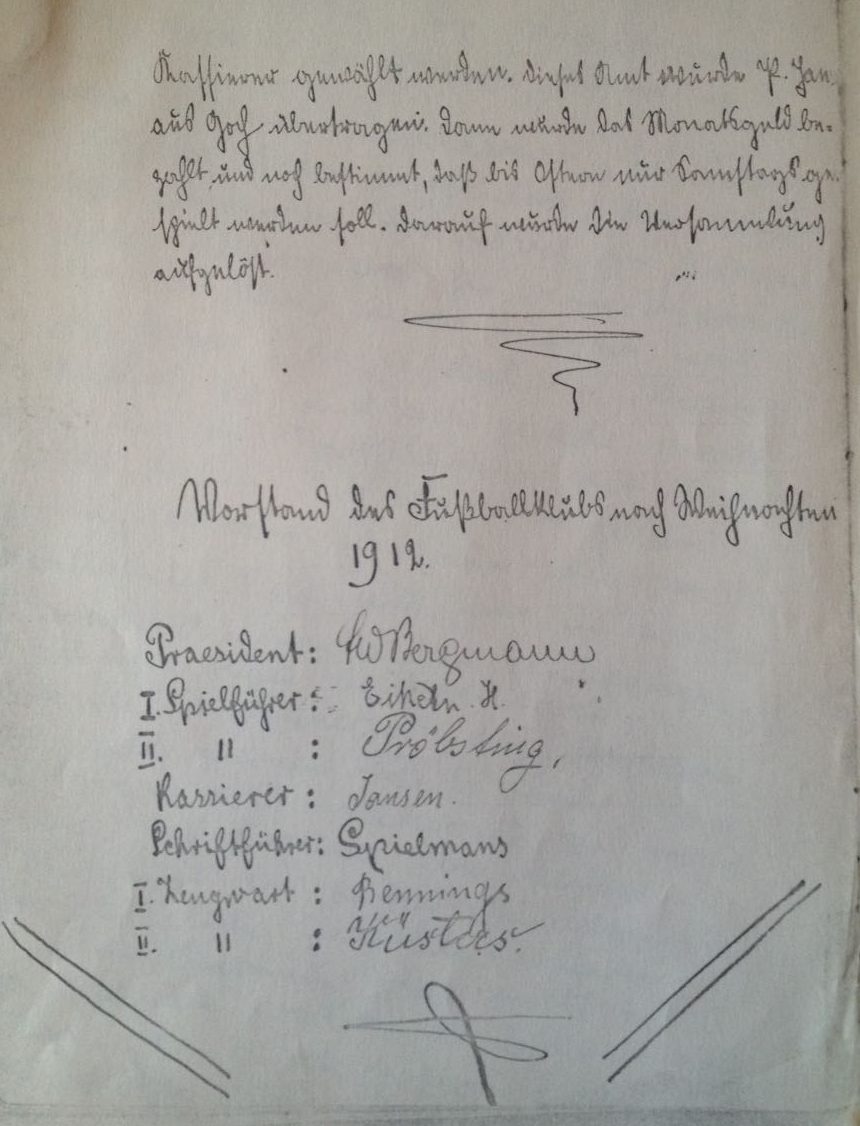 Kassierer gewählt werden. Dieses Amt wurde P. Jan-
aus Goch übertragen. Dann wurde das Monatsgeld be-
zahlt und noch bestimmt, daß bis Ostern nur Samstags ge-
spielt werden soll. Darauf wurde die Versammlung
aufgelöst.
Vorstand des Fußballklubs nach Weihnachten
1912.
Praesident: Bergmann
I. Spielführer: H.
II. " : Pröbsting,
Kassierer: Jansen.
Schriftführer: Spielmans
I. Zeugwart : Bennings
II. " : Küsters.